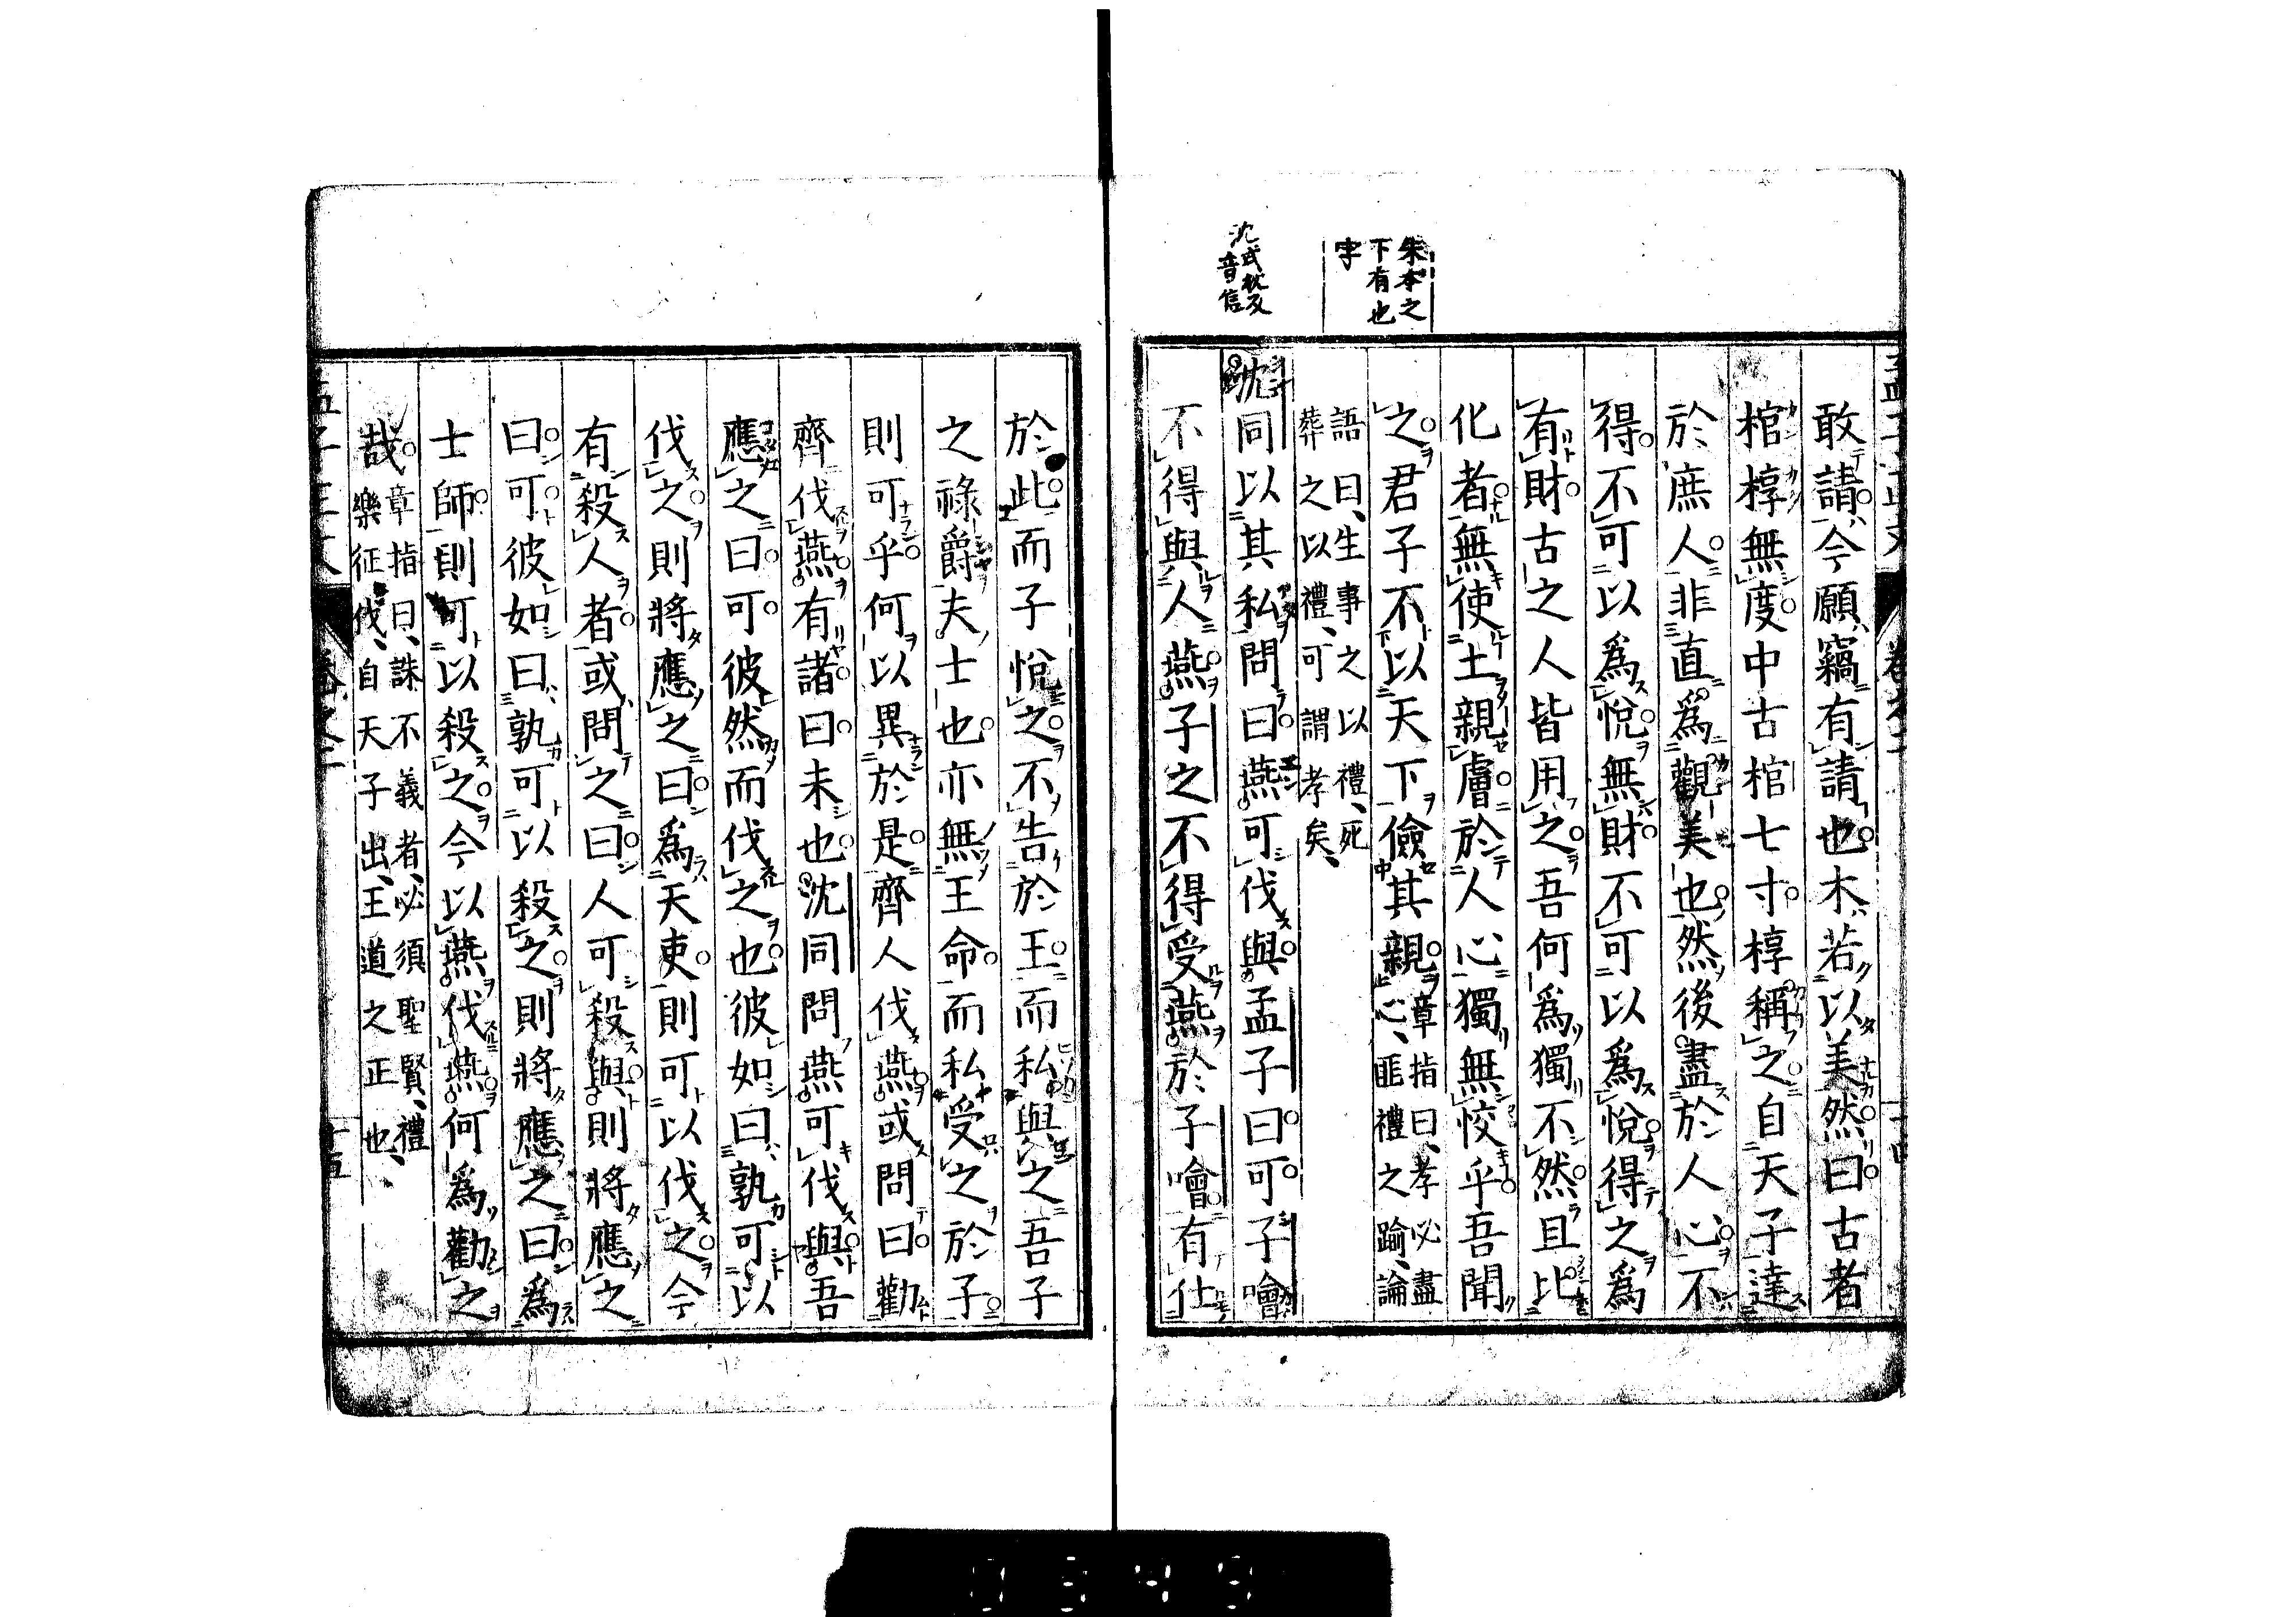 朱本之
下有也
字
沈式枕反
音信
敢請今願竊有請也木若以美然曰古者
棺椁無度中古棺七寸椁稱之自天子達
於庶人非直爲觀美也然後盡於人心不
得不可以爲悅無財不可以爲悅得之爲
有財古之人皆用之吾何爲獨不然且比
化者無使土親膚於人心獨無恔乎吾聞
之君子不以天下儉其親章指曰、孝必盡
心、匪禮之踰、論
語曰、生事之以禮、死
葬之以禮、可謂孝矣、
沈同以其私問曰燕可伐與孟子曰可子噲
不得與人燕子之不得受燕於子噲有仕
於此而子悅之不告於王而私與之吾子
之祿爵夫士也亦無王命而私受之於子
則可乎何以異於是齊人伐燕或問曰勸
齊伐燕有諸曰未也沈同問燕可伐與吾
應之曰可彼然而伐之也彼如曰孰可以
伐之則將應之曰爲天吏則可以伐之今
有殺人者或問之曰人可殺與則將應之
曰可彼如曰孰可以殺之則將應之曰爲
士師則可以殺之今以燕伐燕何爲勸之
哉章指曰、誅不義者、必須聖賢、禮
樂征伐、自天子出、王道之正也、